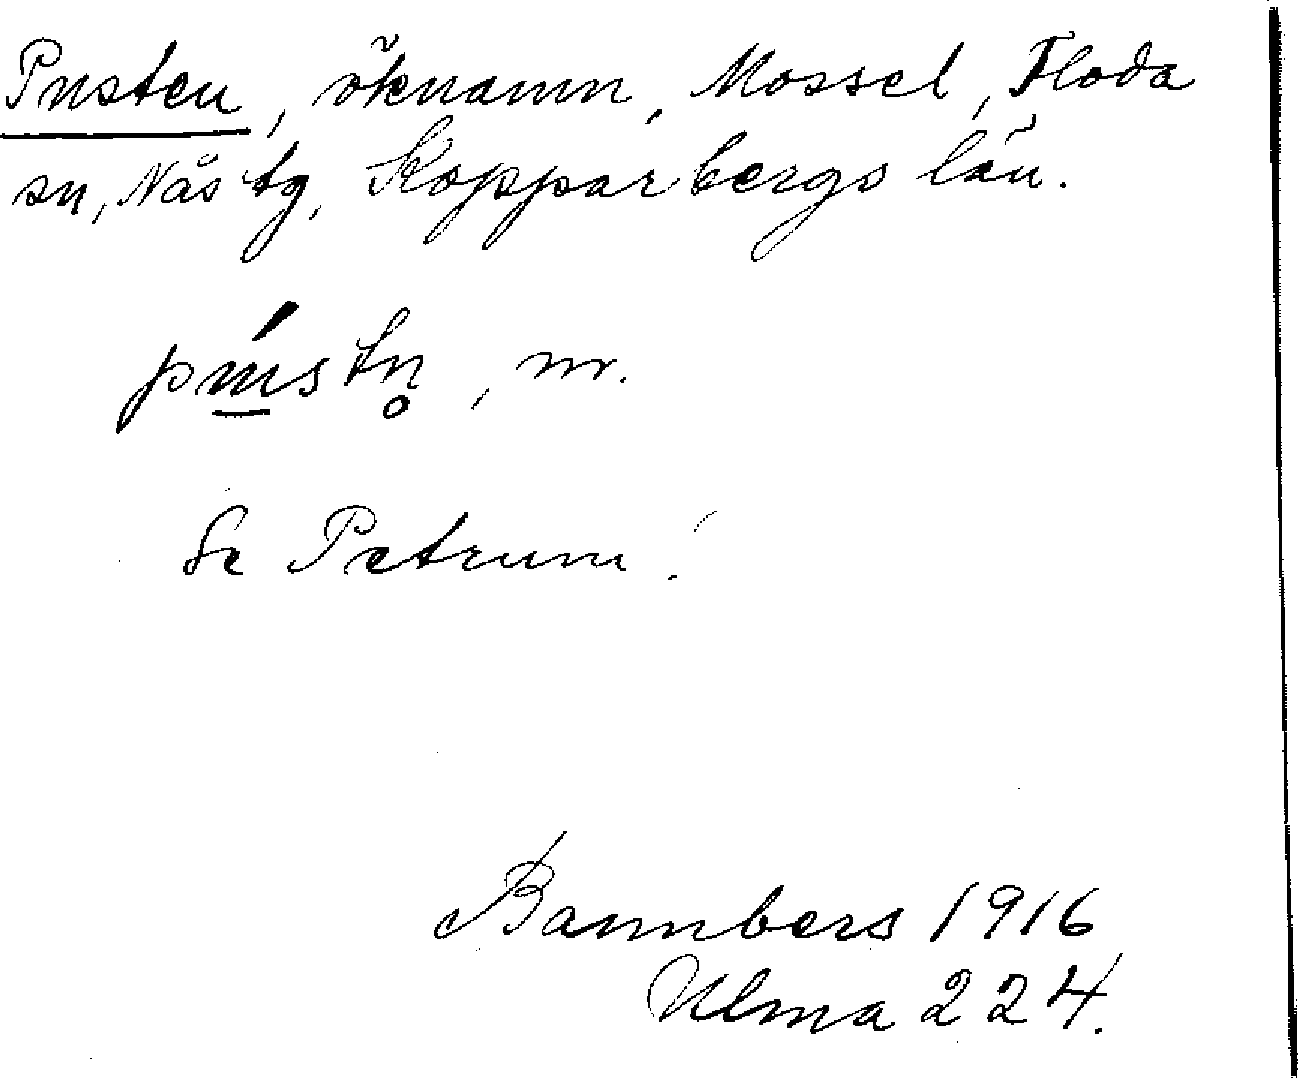 Pusten, öknamn, Mossel, Floda
sn, Nås tg, Kopparbergs län.
pústn̥, m.
Se Petrum!
Bannbers 1916
Ulma 224.